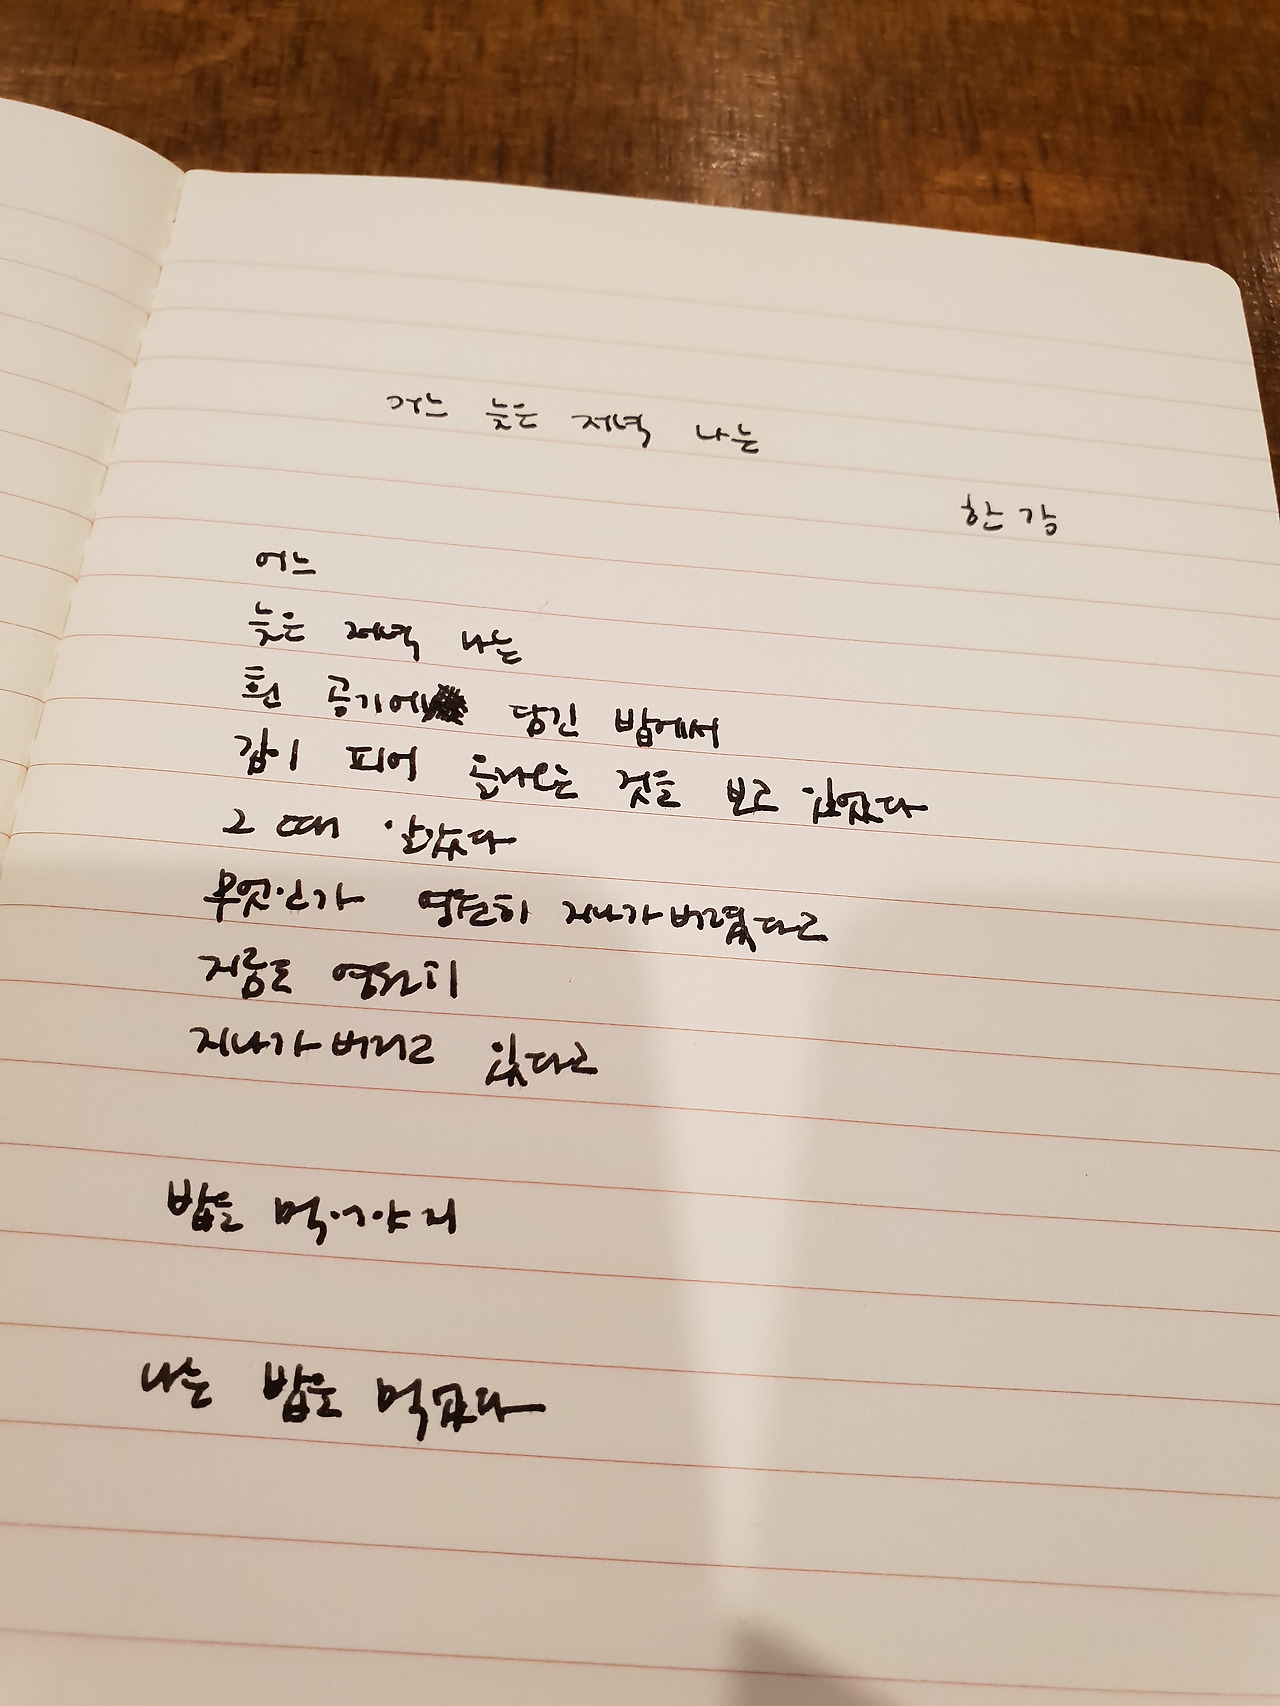 어느 늦은 저녁 나는
한강
어느
늦은 저녁 나는
흰 공기에 담긴 밥에서
김이 피어 올라오는 것을 보고 있었다
그 때 알았다
무엇인가 영원히 지나가버렸다고
지금도 영원히
지나가버리고 있다고
밥을 먹어야지
나는 밥을 먹었다